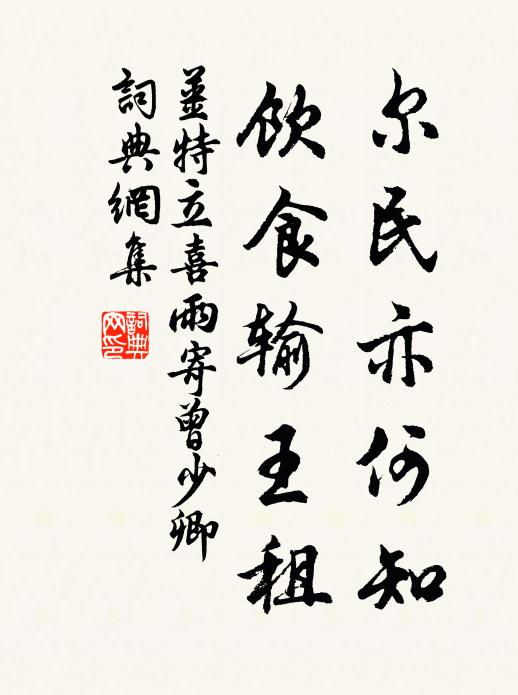 尔民亦何知
飲食输王租
姜特立喜雨寄曾少卿
詞典網集
詞典
网印